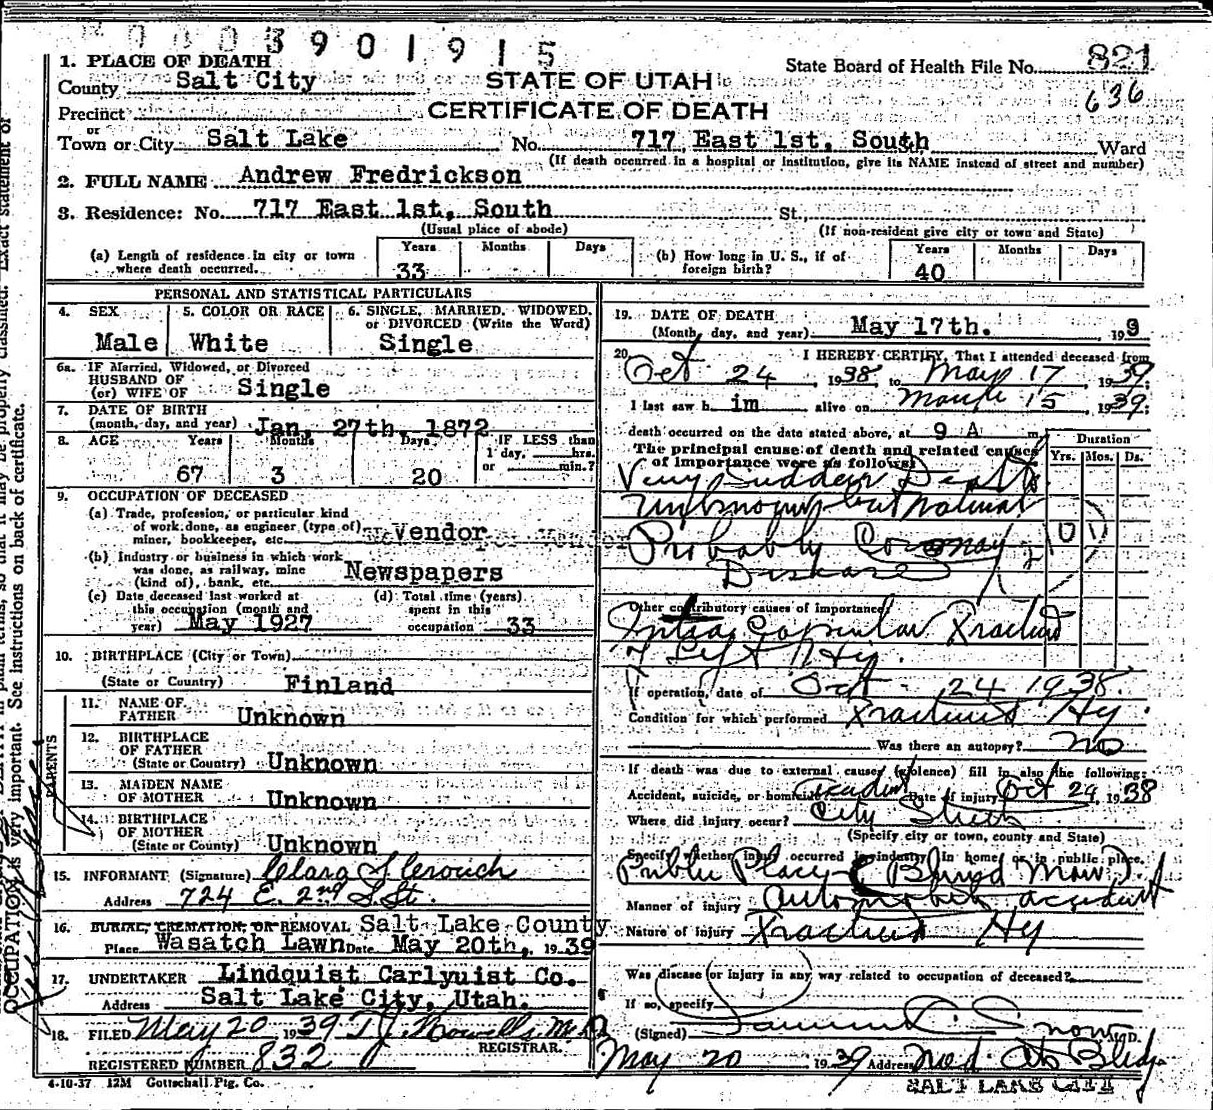 0003901915
821
1. PLACE OF DEATH
State Board of Health File No.
County Salt City
STATE OF UTAH
636
Precinct
CERTIFICATE OF DEATH
or
Town or City Salt Lake No. 717 East 1st, South Ward
(If death occurred in a hospital or institution, give its NAME instead of street and number)
2. FULL NAME Andrew Fredrickson
3. Residence: No. 717 East 1st, South St.
(Usual place of abode) (If non-resident give city or town and State)
(a) Length of residence in city or town where death occurred. Years 33 Months Days
(b) How long in U. S., if of foreign birth? Years 40 Months Days
PERSONAL AND STATISTICAL PARTICULARS
4. SEX Male
5. COLOR OR RACE White
6. SINGLE, MARRIED, WIDOWED, or DIVORCED (Write the Word) Single
6a. IF Married, Widowed, or Divorced
HUSBAND OF
(or) WIFE OF Single
7. DATE OF BIRTH
(month, day, and year) Jan. 27th, 1872
8. AGE Years 67 Months 3 Days 20
IF LESS than
1 day, hrs.
or min.?
9. OCCUPATION OF DECEASED
(a) Trade, profession, or particular kind
of work done, as engineer (type of)
miner, bookkeeper, etc. Vendor
(b) Industry or business in which work
was done, as railway, mine
(kind of), bank, etc. Newspapers
(c) Date deceased last worked at
this occupation (month and
year) May 1927
(d) Total time (years)
spent in this
occupation 33
10. BIRTHPLACE (City or Town)
(State or Country) Finland
PARENTS
11. NAME OF
FATHER Unknown
12. BIRTHPLACE
OF FATHER
(State or Country) Unknown
13. MAIDEN NAME
OF MOTHER Unknown
14. BIRTHPLACE
OF MOTHER
(State or Country) Unknown
15. INFORMANT (Signature) Clara
Address 724 E. 2nd S. St.
16. BURIAL, CREMATION, OR REMOVAL Salt Lake County
Place Wasatch Lawn Date May 20th, 1939
17. UNDERTAKER Lindquist Carlquist Co.
Address Salt Lake City, Utah.
18. FILED May 20 1939 T. J. Howells M.D.
REGISTRAR.
REGISTERED NUMBER 832
4-10-37 12M Gottschall Ptg. Co.
19. DATE OF DEATH
(Month, day, and year) May 17th. 19 9
20. I HEREBY CERTIFY, That I attended deceased from
Oct 24 1938 to May 17 1939;
I last saw h im alive on 15 1939;
death occurred on the date stated above, at 9 A m
The principal cause of death and related causes
of importance were as follows:
Duration
Yrs. Mos. Ds.
Very Sudden Death
Unknown but natural
Probably Coronary
Disease
Other contributory causes of importance:
Intra Capsular Fracture
Left Hip.
If operation, date of Oct 24 1938.
Condition for which performed Fractured Hip.
Was there an autopsy? no
If death was due to external causes (violence) fill in also the following:
Accident, suicide, or homicide Accident Date of injury Oct 24, 1938
Where did injury occur? City Street
(Specify city or town, county and State)
Specify whether injury occurred in industry, in home, or in public place.
Public Place (Blind Man).
Manner of injury Automobile accident
Nature of injury Fractured Hip
Was disease or injury in any way related to occupation of deceased?
If so, specify
(Signed) Snow M.D.
May 20 1939 Address Med. Arts Bldg.
SALT LAKE CITY
very important. See instructions on back of certificate.